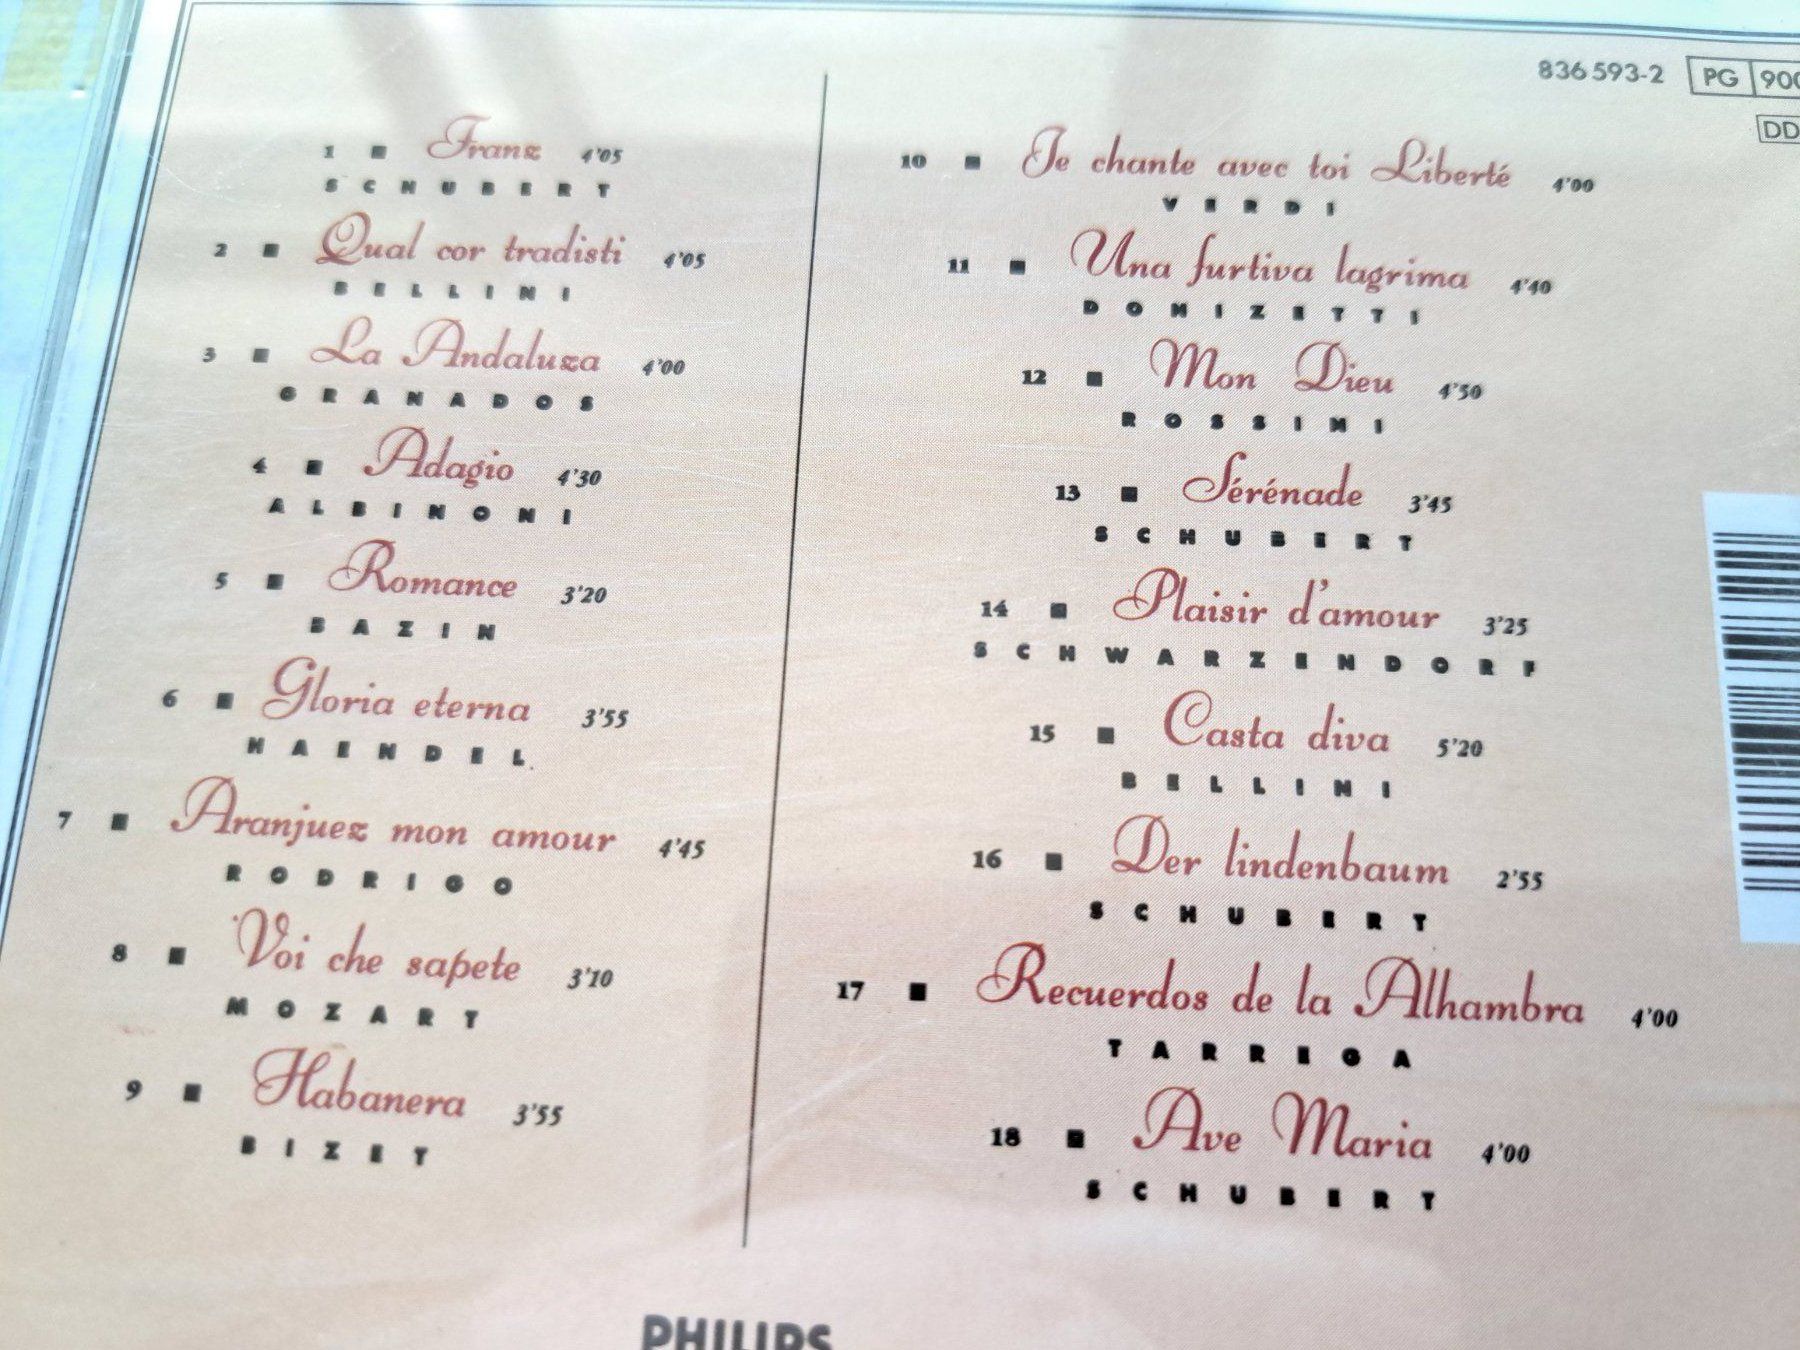 836 593-2 PG 900
DD
1 ■ Franz 4'05
SCHUBERT
2 ■ Qual cor tradisti 4'05
BELLINI
3 ■ La Andaluza 4'00
GRANADOS
4 ■ Adagio 4'30
ALBINONI
5 ■ Romance 3'20
BAZIN
6 ■ Gloria eterna 3'55
HAENDEL
7 ■ Aranjuez mon amour 4'45
RODRIGO
8 ■ Voi che sapete 3'10
MOZART
9 ■ Habanera 3'55
BIZET
10 ■ Je chante avec toi Liberté 4'00
VERDI
11 ■ Una furtiva lagrima 4'40
DONIZETTI
12 ■ Mon Dieu 4'50
ROSSINI
13 ■ Sérénade 3'45
SCHUBERT
14 ■ Plaisir d'amour 3'25
SCHWARZENDORF
15 ■ Casta diva 5'20
BELLINI
16 ■ Der lindenbaum 2'55
SCHUBERT
17 ■ Recuerdos de la Alhambra 4'00
TARREGA
18 ■ Ave Maria 4'00
SCHUBERT
PHILIPS